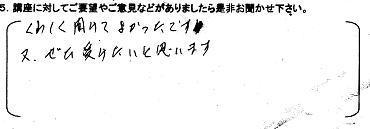 5. 講座に対してご要望やご意見などがありましたら是非お聞かせ下さい。
くわしく聞けてよかったです
又、ぜひ受けたいと思います